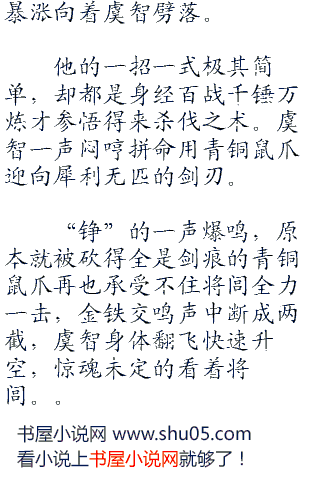 暴涨向着虞智劈落。
他的一招一式极其简
单，却都是身经百战千锤万
炼才参悟得来杀伐之术。虞
智一声闷哼拼命用青铜鼠爪
迎向犀利无匹的剑刃。
“铮”的一声爆鸣，原
本就被砍得全是剑痕的青铜
鼠爪再也承受不住将闾全力
一击，金铁交鸣声中断成两
截，虞智身体翻飞快速升
空，惊魂未定的看着将
闾。。
书屋小说网 www.shu05.com
看小说上书屋小说网就够了！